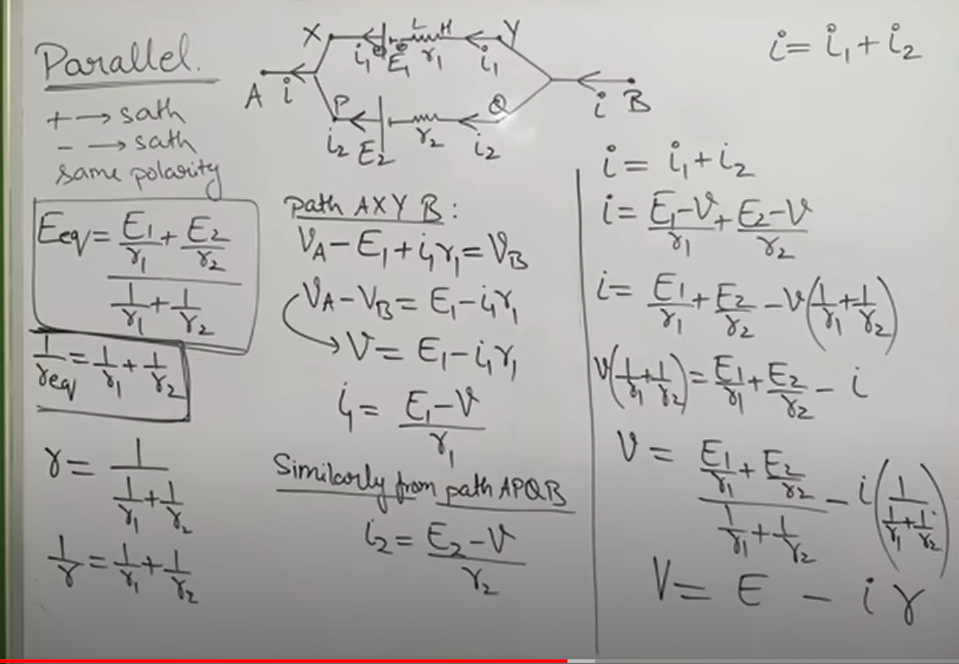 Parallel.
+ → sath
- → sath
same polarity
Eeq = (E₁/r₁ + E₂/r₂) / (1/r₁ + 1/r₂)
1/req = 1/r₁ + 1/r₂
r = 1 / (1/r₁ + 1/r₂)
1/r = 1/r₁ + 1/r₂
X L H Y
i₁ E₁ r₁ i₁
A i P Q i B
i₂ E₂ r₂ i₂
path AXYB:
V_A - E₁ + i₁r₁ = V_B
V_A - V_B = E₁ - i₁r₁
→ V = E₁ - i₁r₁
i₁ = (E₁ - V) / r₁
Similarly from path APQB
i₂ = (E₂ - V) / r₂
i = i₁ + i₂
i = i₁ + i₂
i = (E₁ - V)/r₁ + (E₂ - V)/r₂
i = E₁/r₁ + E₂/r₂ - V(1/r₁ + 1/r₂)
V(1/r₁ + 1/r₂) = E₁/r₁ + E₂/r₂ - i
V = (E₁/r₁ + E₂/r₂) / (1/r₁ + 1/r₂) - i(1 / (1/r₁ + 1/r₂))
V = E - i r